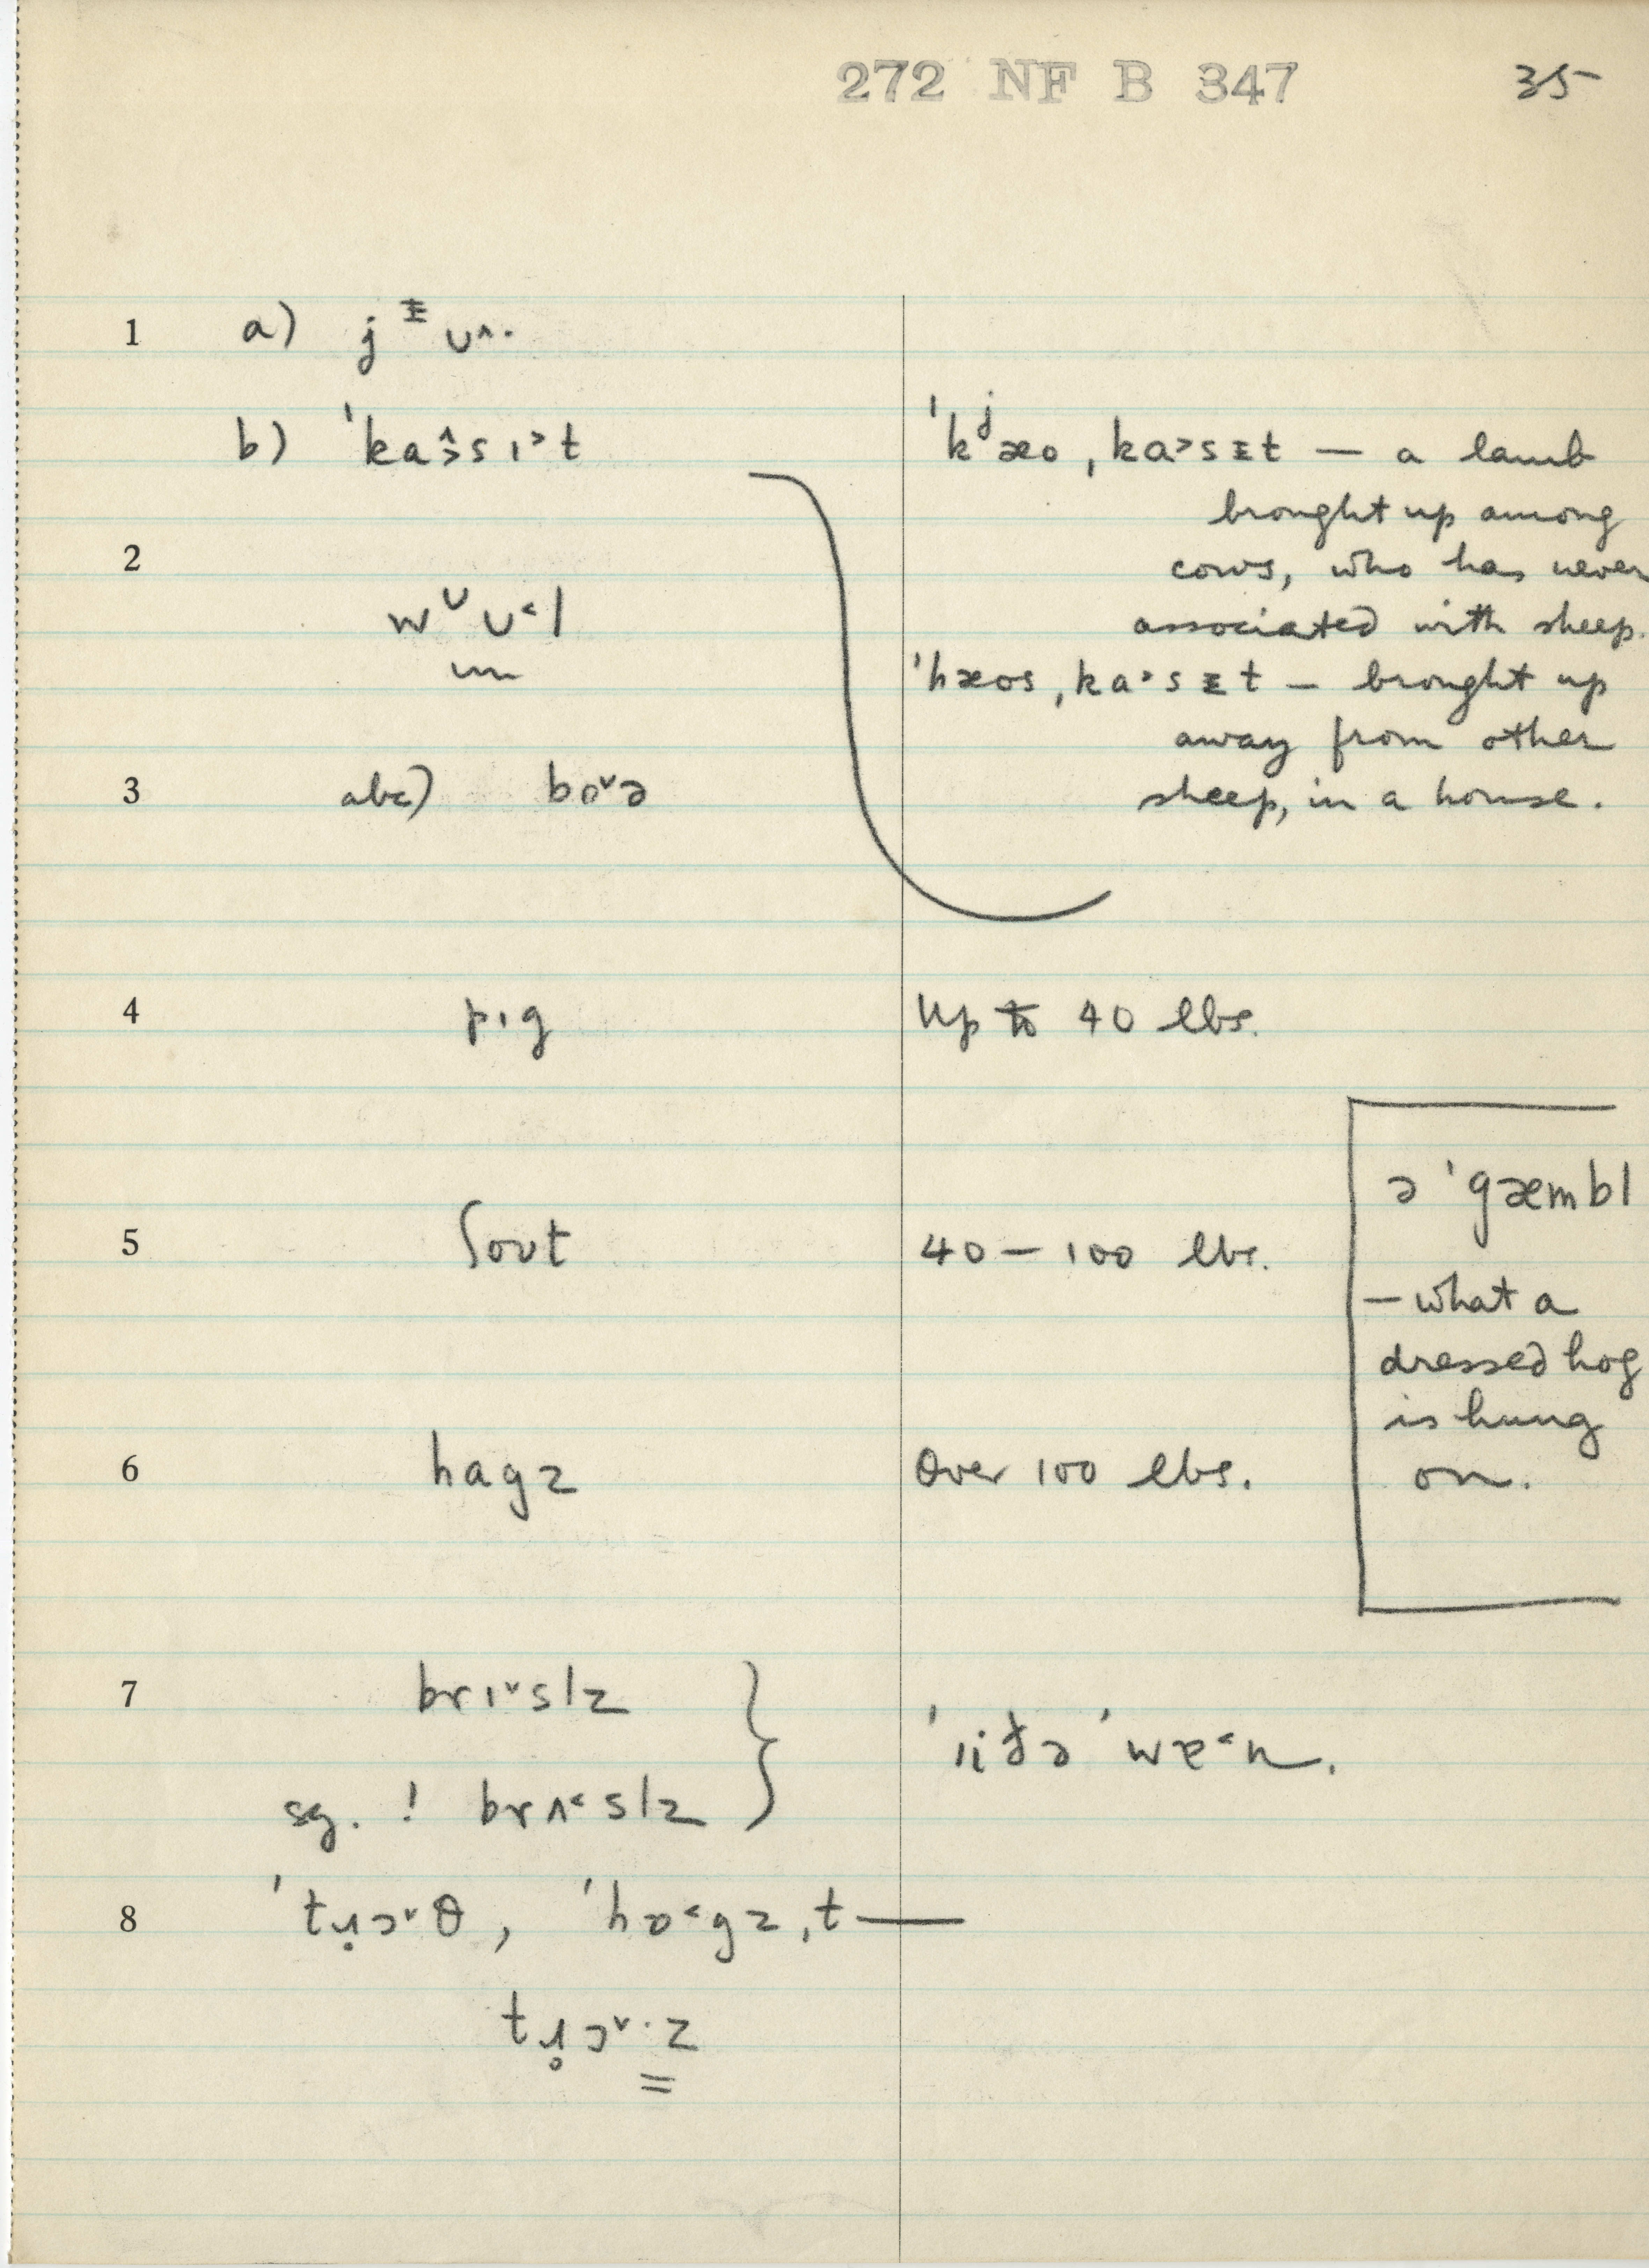 272 NF B 347 35
1 a) j ᵻ ʊ^·
b) ˈka^>s ɪ> t
ˈkʲæo ˌka>sᵻt — a lamb
brought up among
2
cows, who has never
wᶷʊ<l
associated with sheep.
ˈhæos ˌka>sᵻt — brought up
away from other
3 abc) boˇə
sheep, in a house.
4 pɪg
Up to 40 lbs.
ə ˈgæmbl
5 ʃoʊt
40 — 100 lbs.
— what a
dressed hog
is hung
on.
6 hagz
Over 100 lbs.
7 brɪˇslz
sg. ! brʌ<slz
8 ˈtɹ̥ɔˇθ, ˈhɒ<gz ˌt—
tɹ̥ɔˇ·z